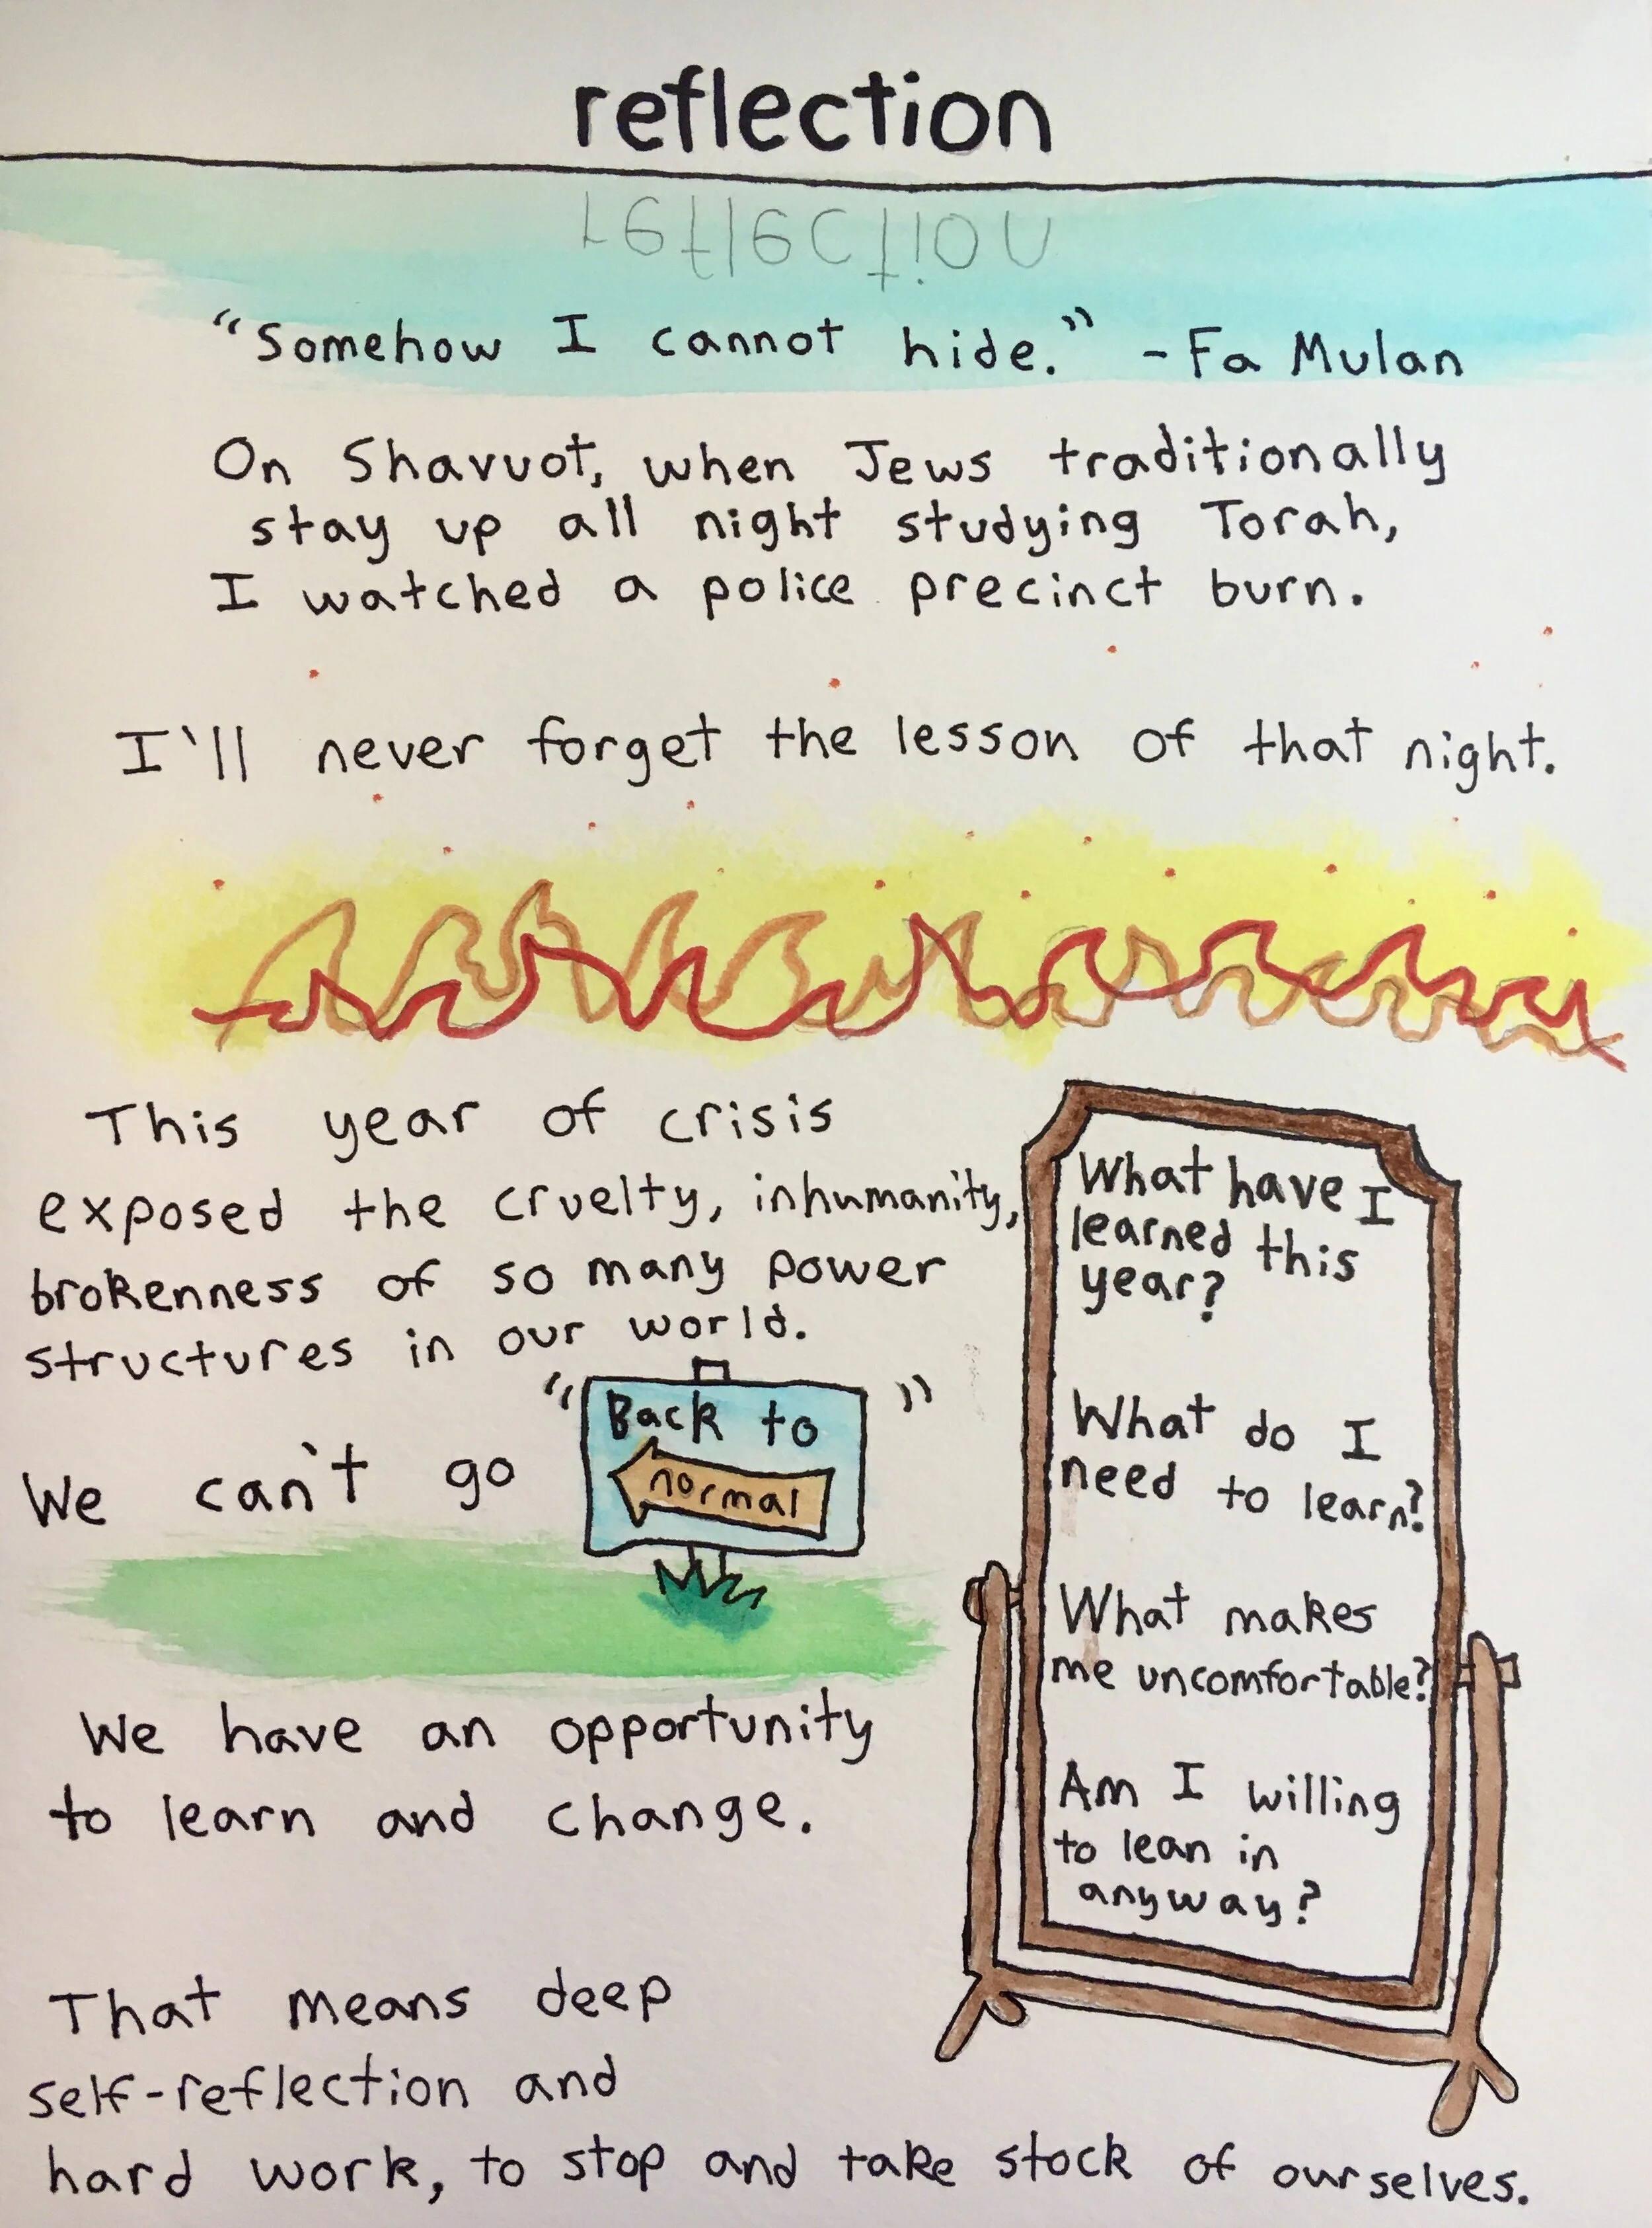 reflection
reflection
"Somehow I cannot hide." - Fa Mulan
On Shavuot, when Jews traditionally
stay up all night studying Torah,
I watched a police precinct burn.
I'll never forget the lesson of that night.
This year of crisis
exposed the cruelty, inhumanity,
brokenness of so many power
structures in our world.
We can't go "Back to
normal"
We have an opportunity
to learn and change.
That means deep
self-reflection and
hard work, to stop and take stock of ourselves.
What have I
learned this
year?
What do I
need to learn?
What makes
me uncomfortable?
Am I willing
to lean in
anyway?